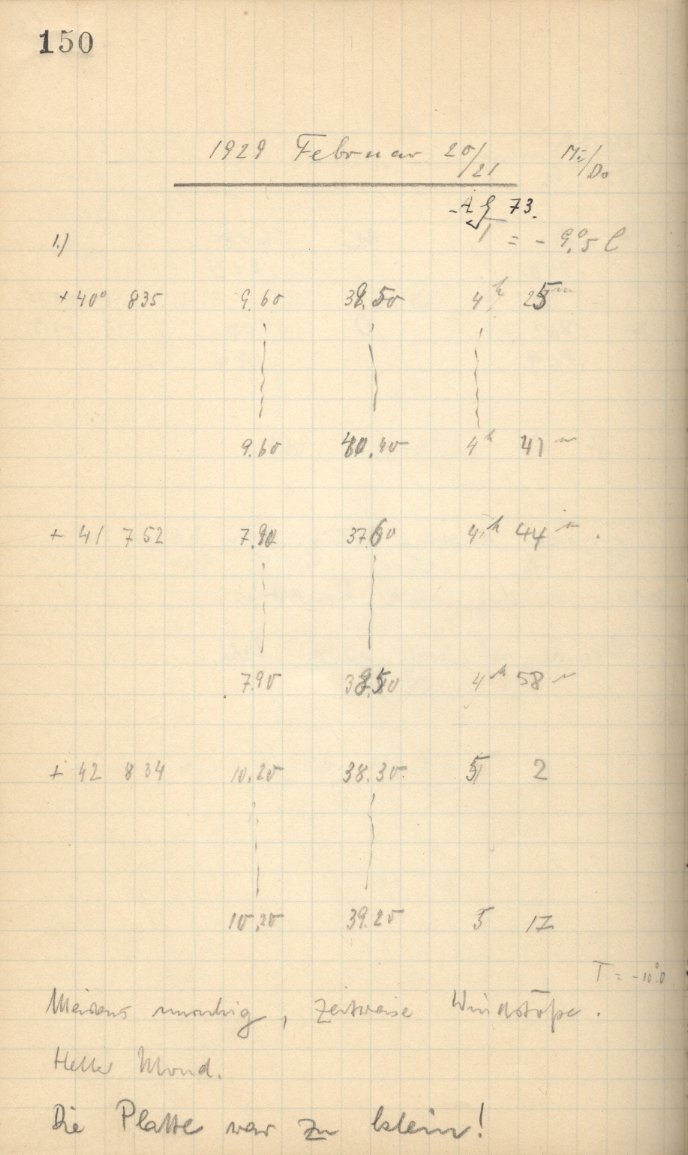 150
1929 Februar 20/21 Mi/Do
AG 73.
1.) T = -9°,5 C
+40° 835 9.60 38.50 4h 25m
9.60 40.40 4h 41m
+ 41 752 7.90 37.60 4h 44m.
7.90 38.50 4h 58m
+ 42 834 10.20 38.30 5 2
10.20 39.20 5 17
T = -10°.0
unruhig, zeitweise Windstöße.
Heller Mond.
Die Platte war zu klein!